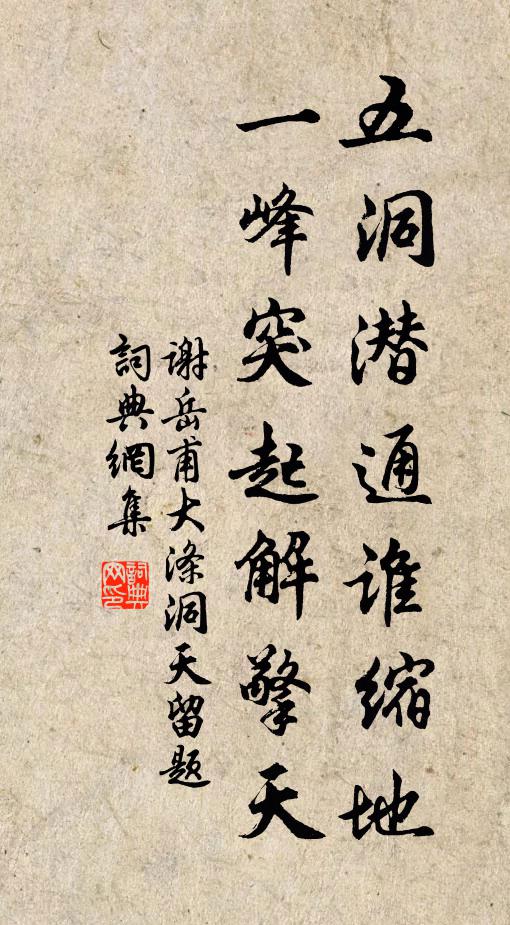 五洞潜通谁缩地
一峰突起解擎天
谢岳甫大涤洞天留题
詞典網集
詞典网印